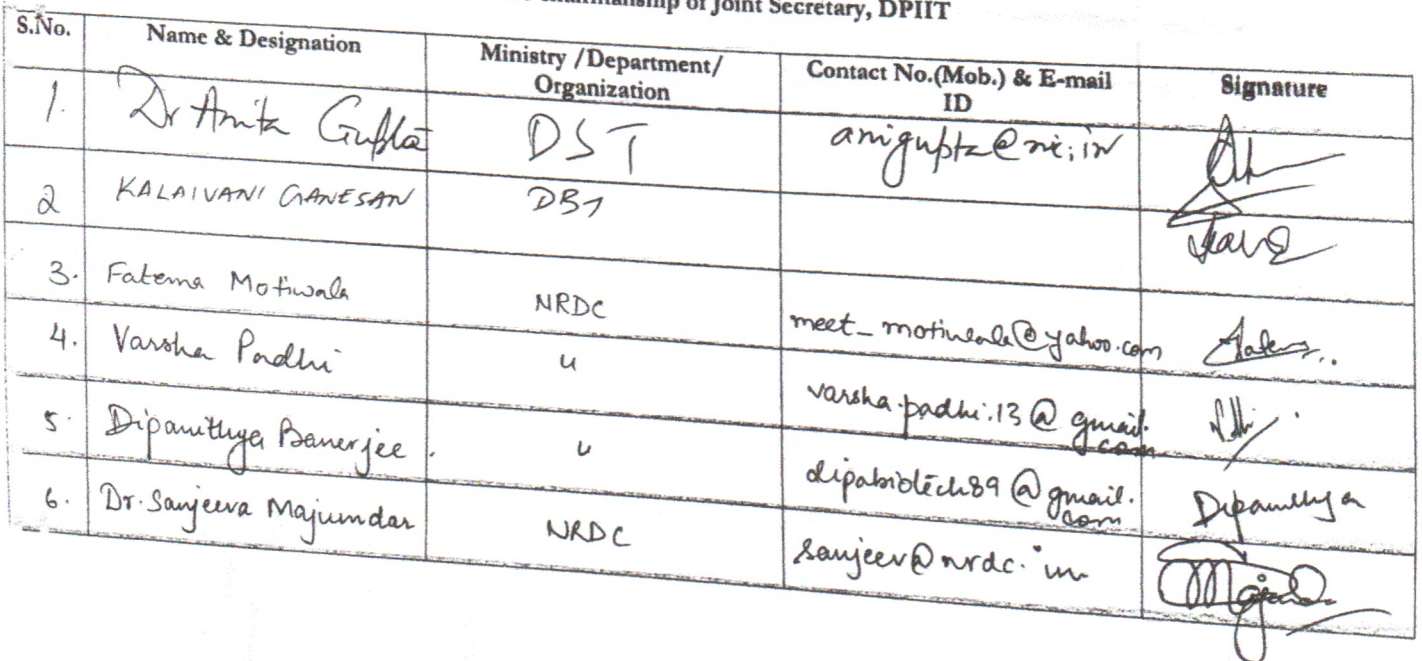 Chairmanship of Joint Secretary, DPIIT
S.No. Name & Designation Ministry /Department/ Organization Contact No.(Mob.) & E-mail ID Signature
1. Dr Anita Gupta DST anigupta@nic.in
2 KALAIVANI GANESAN DBT
3. Fatema Motiwala NRDC meet_motiwala@yahoo.com
4. Varsha Padhi u varsha.padhi.13@gmail.com
5. Dipanithya Banerjee. u dipabiotech89@gmail.com Dipanithya
6. Dr. Sanjeeva Majumdar NRDC sanjeev@nrdc.in